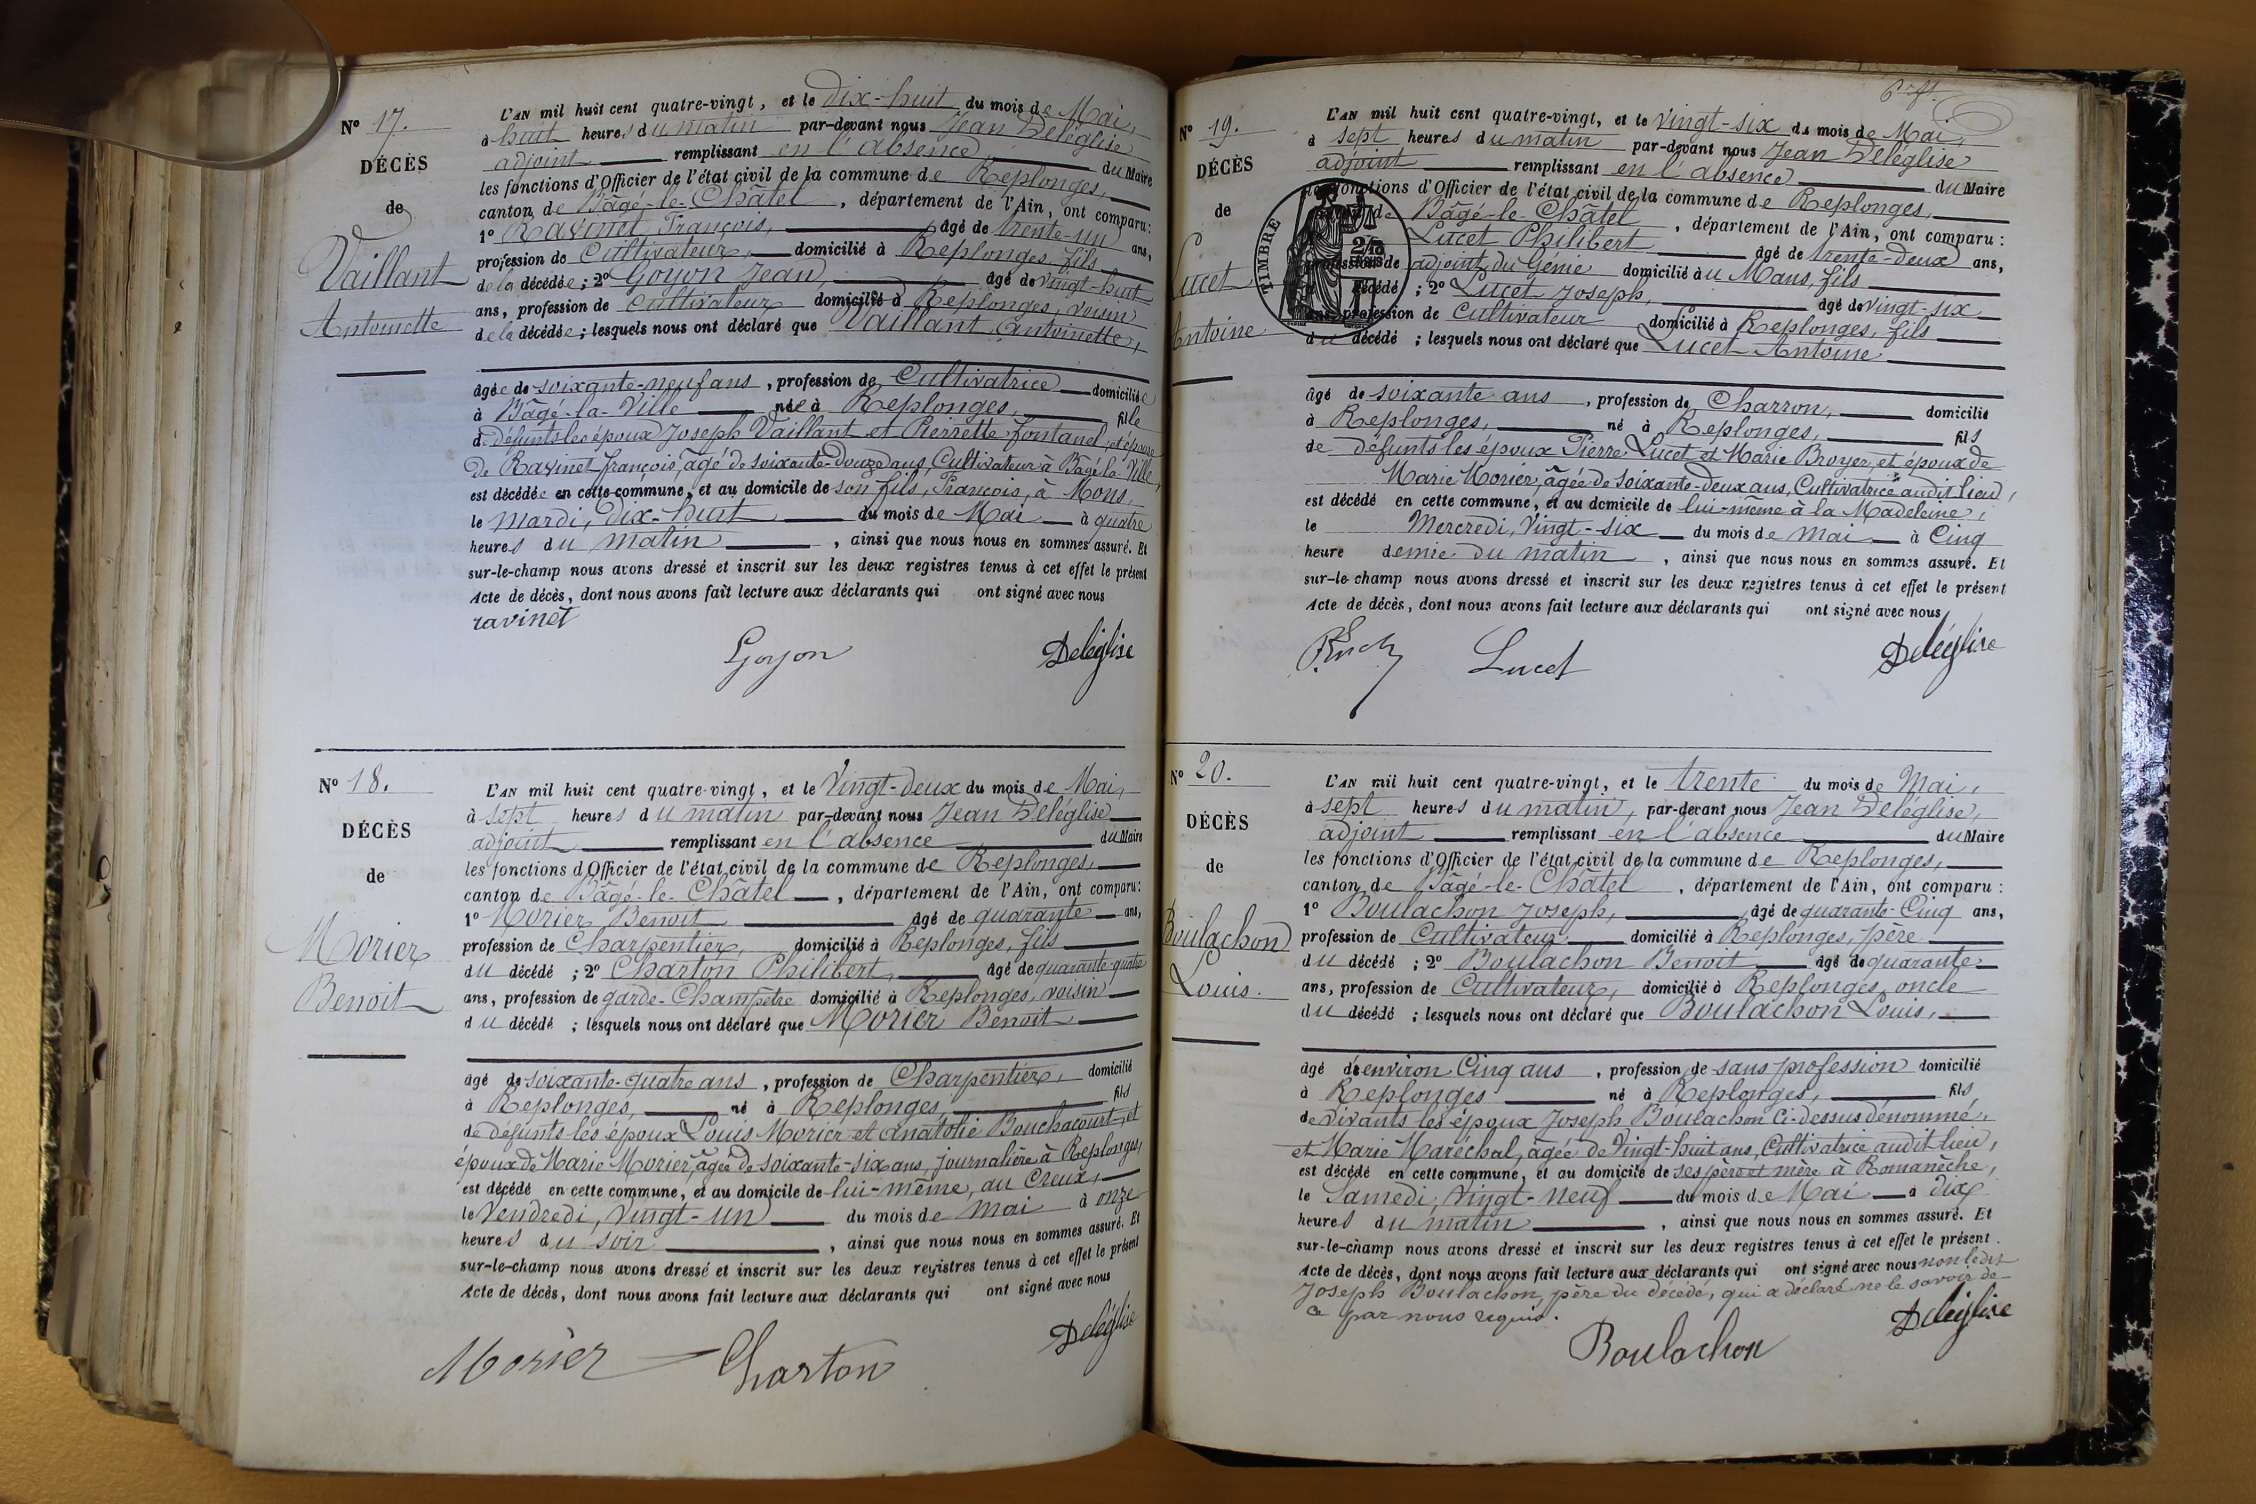 Nº 17.
DÉCÈS
de
Vaillant
Antoinette
L'AN mil huit cent quatre-vingt, et le dix-huit du mois de Mai,
à huit heures du matin par-devant nous Jean Deléglise
adjoint remplissant en l'absence du Maire
les fonctions d'Officier de l'état civil de la commune de Replonges,
canton de Bâgé-le-Châtel, département de l'Ain, ont comparu:
1º Ravinet François, âgé de trente-un ans,
profession de Cultivateur, domicilié à Replonges, fils
de la décédée; 2º Goyon Jean, âgé de vingt-huit
ans, profession de Cultivateur domicilié à Replonges, voisin
de la décédée; lesquels nous ont déclaré que Vaillant Antoinette,
âgée de soixante-neuf ans, profession de Cultivatrice domiciliée
à Bâgé-la-Ville née à Replonges, fille
de défunts les époux Joseph Vaillant et Pierrette Fontanel, et épouse
de Ravinet françois, âgé de soixante-douze ans, Cultivateur à Bâgé-la-Ville,
est décédée en cette commune, et au domicile de son fils, François, à Mons,
le mardi, dix-huit du mois de Mai à quatre
heures du matin, ainsi que nous nous en sommes assuré. Et
sur-le-champ nous avons dressé et inscrit sur les deux registres tenus à cet effet le présent
Acte de décès, dont nous avons fait lecture aux déclarants qui ont signé avec nous
ravinet
Goyon Deléglise
Nº 18.
DÉCÈS
de
Morier
Benoit
L'AN mil huit cent quatre-vingt, et le Vingt-deux du mois de Mai,
à sept heures du matin par-devant nous Jean Deléglise
adjoint remplissant en l'absence du Maire
les fonctions d'Officier de l'état civil de la commune de Replonges,
canton de Bâgé-le-Châtel, département de l'Ain, ont comparu:
1º Morier Benoit âgé de quarante ans,
profession de Charpentier, domicilié à Replonges, fils
du décédé; 2º Charton Philibert, âgé de quarante-quatre
ans, profession de garde-Champêtre domicilié à Replonges, voisin
du décédé; lesquels nous ont déclaré que Morier Benoit
âgé de soixante-quatre ans, profession de Charpentier, domicilié
à Replonges, né à Replonges, fils
de défunts les époux Louis Morier et Anatolie Bouchacourt, et
époux de Marie Morier, âgée de soixante-six ans, journalière à Replonges,
est décédé en cette commune, et au domicile de lui-même, au Creux,
le Vendredi, Vingt-un du mois de Mai à onze
heures du soir, ainsi que nous nous en sommes assuré. Et
sur-le-champ nous avons dressé et inscrit sur les deux registres tenus à cet effet le présent
Acte de décès, dont nous avons fait lecture aux déclarants qui ont signé avec nous
Morier Charton Deléglise
Nº 19.
DÉCÈS
de
Lucet
Antoine
TIMBRE
L'AN mil huit cent quatre-vingt, et le Vingt-six du mois de Mai,
à sept heures du matin par-devant nous Jean Deléglise
adjoint remplissant en l'absence du Maire
les fonctions d'Officier de l'état civil de la commune de Replonges,
de Bâgé-le-Châtel, département de l'Ain, ont comparu:
Lucet Philibert âgé de trente-deux ans,
profession de adjoint du Génie domicilié au Mans, fils
décédé; 2º Lucet Joseph, âgé de vingt-six
ans, profession de Cultivateur domicilié à Replonges, fils
du décédé; lesquels nous ont déclaré que Lucet Antoine
âgé de soixante ans, profession de Charron, domicilié
à Replonges, né à Replonges, fils
de défunts les époux Pierre Lucet et Marie Broyer, et époux de
Marie Morier, âgée de soixante-deux ans, Cultivatrice audit lieu,
est décédé en cette commune, et au domicile de lui-même à la Madeleine,
le Mercredi, Vingt-six du mois de Mai à Cinq
heure demie du matin, ainsi que nous nous en sommes assuré. Et
sur-le-champ nous avons dressé et inscrit sur les deux registres tenus à cet effet le présent
Acte de décès, dont nous avons fait lecture aux déclarants qui ont signé avec nous
Lucet Deléglise
Nº 20.
DÉCÈS
de
Boulachon
Louis.
L'AN mil huit cent quatre-vingt, et le trente du mois de Mai,
à sept heures du matin, par-devant nous Jean Deléglise,
adjoint remplissant en l'absence du Maire
les fonctions d'Officier de l'état civil de la commune de Replonges,
canton de Bâgé-le-Châtel, département de l'Ain, ont comparu:
1º Boulachon Joseph, âgé de quarante-Cinq ans,
profession de Cultivateur domicilié à Replonges, père
du décédé; 2º Boulachon Benoit âgé de quarante
ans, profession de Cultivateur, domicilié à Replonges, oncle
du décédé; lesquels nous ont déclaré que Boulachon Louis,
âgé d'environ Cinq ans, profession de sans profession domicilié
à Replonges né à Replonges, fils
de vivants les époux Joseph Boulachon Ci-dessus dénommé,
et Marie Maréchal, âgée de Vingt-huit ans, Cultivatrice audit lieu,
est décédé en cette commune, et au domicile de ses père et mère à Romanèche,
le Samedi, Vingt-neuf du mois de Mai à dix
heures du matin, ainsi que nous nous en sommes assuré. Et
sur-le-champ nous avons dressé et inscrit sur les deux registres tenus à cet effet le présent
Acte de décès, dont nous avons fait lecture aux déclarants qui ont signé avec nous non ledit
Joseph Boulachon, père du décédé, qui a déclaré ne le savoir de
ce par nous requis.
Boulachon Deléglise